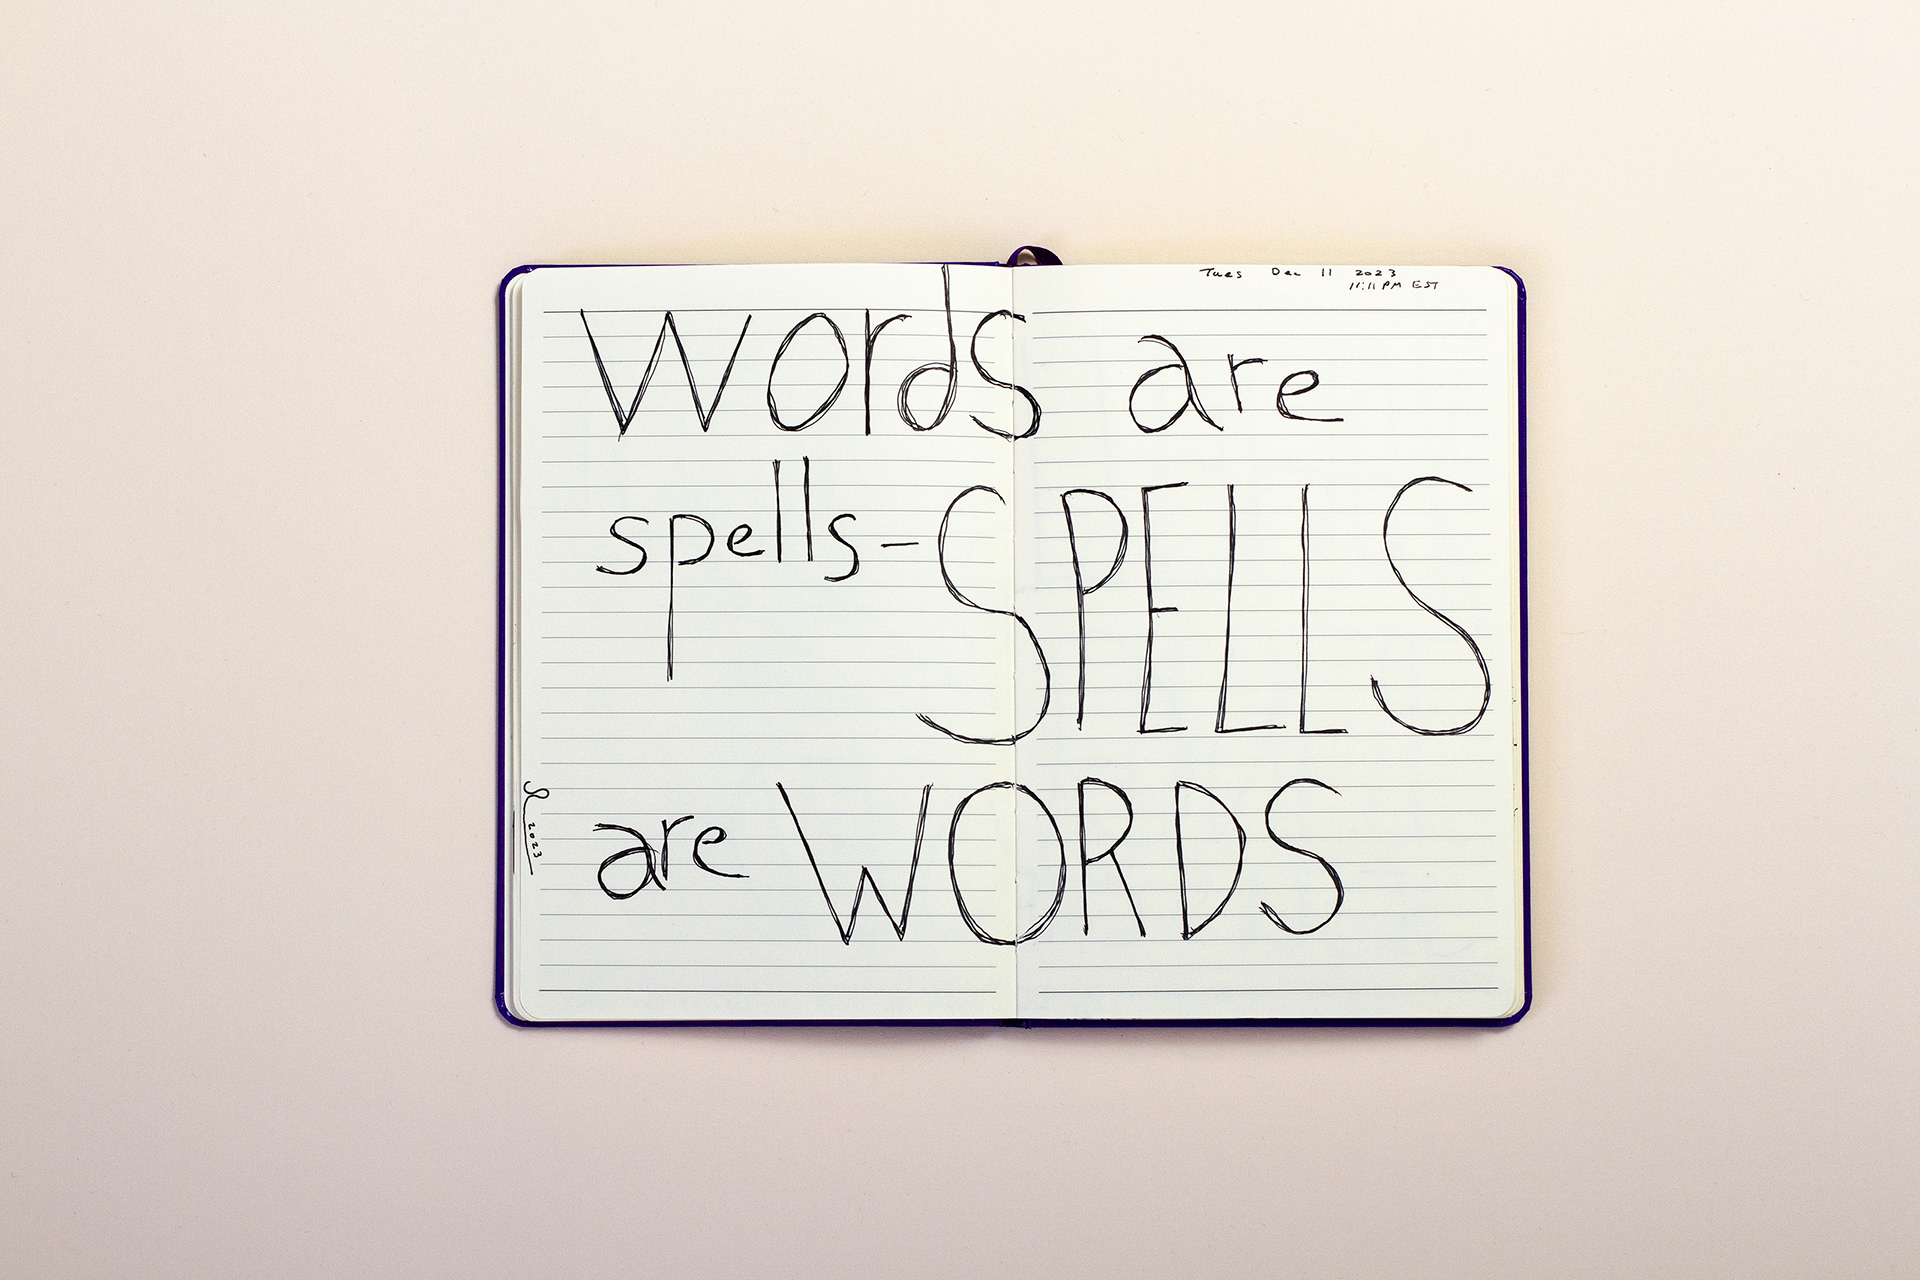 Tues Dec 11 2023
11:11 PM EST
Words are
spells - SPELLS
are WORDS
2023